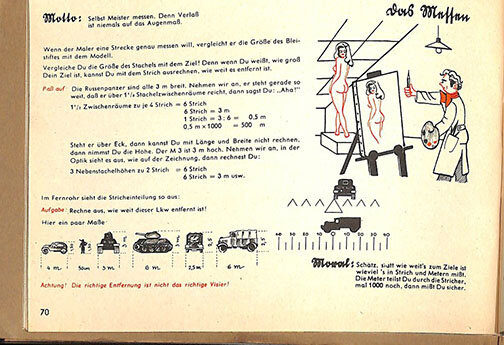 Das Messen
Motto: Selbst Meister messen. Denn Verlaß
ist niemals auf das Augenmaß.
Wenn der Maler eine Strecke genau messen will, vergleicht er die Größe des Blei-
stiftes mit dem Modell.
Vergleiche Du die Größe des Stachels mit dem Ziel! Denn wenn Du weißt, wie groß
Dein Ziel ist, kannst Du mit dem Strich ausrechnen, wie weit es entfernt ist.
Paß auf: Die Russenpanzer sind alle 3 m breit. Nehmen wir an, er steht gerade so
weit, daß er über 1½ Stachelzwischenräume reicht, dann sagst Du: „Aha!"
1½ Zwischenräume zu je 4 Strich = 6 Strich
6 Strich = 3 m
1 Strich = 3 : 6 = 0,5 m
0,5 m × 1000 = 500 m
Steht er über Eck, dann kannst Du mit Länge und Breite nicht rechnen,
dann nimmst Du die Höhe. Der M 3 ist 3 m hoch. Nehmen wir an, in der
Optik sieht es aus, wie auf der Zeichnung, dann rechnest Du:
3 Nebenstachelhöhen zu 2 Strich = 6 Strich
6 Strich = 3 m usw.
Im Fernrohr sieht die Stricheinteilung so aus:
Aufgabe: Rechne aus, wie weit dieser Lkw entfernt ist!
Hier ein paar Maße:
40 30 20 10 0 10 20 30 40
4 m 50cm 3 m 6 m 2,5 m 6 m
Moral: Schatz, sieh wie weit's zum Ziele ist
wieviel 's in Strich und Metern mißt.
Die Meter teilst Du durch die Striche,
mal 1000 noch, dann mißt Du sicher.
Achtung! Die richtige Entfernung ist nicht das richtige Visier!
70